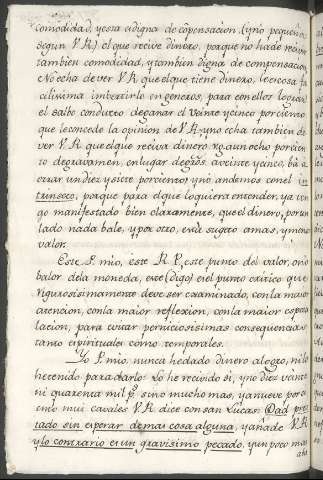 comodidad, y cosa es digna de compensacion (y no pequeña
segun V.R.) el que recive dinero, porque no ha de recivir
tambien comodidad, y tambien digna de compensacion
No echa de ver V.R. que el que tiene dinero, le es cosa fa
cilisima imbertirlo en generos, para con ellos lograr
el salbo conducto de ganar el veinte y cinco por ciento
que le concede la opinion de V.R. y no echa tambien de
ver V.R. que el que reciva dinero a un ocho por cien
to de gravamen, en lugar de a veinte y cinco, bá a
errar un diez y siete por ciento; y no andemos con el in
trinseco, porque para el que lo quiera entender, ya ten
go manifestado bien claramente, que el dinero, por un
lado nada bale, y por otro, está sugeto a mas, y menos
valor.
Este P. mio, este R. P. este punto del valor, ó no
balor de la moneda, este (digo) es el punto critico que
rigurosisimamente deve ser examinado, con la maior
atencion, con la maior reflexion, con la maior espera
lacion, para evitar perniciosisimas consequencias
tanto espirituales como temporales.
Yo P. mio. nunca he dado dinero a logro, ni lo
he tenido para darlo: Lo he recivido si, y no diez veinte
ni quarenta mil p.s sino mucho mas, y a nueve por ci
ento mui cavales V.R. dice con san Lucas: Dad pres
tado sin esperar de mas cosa alguna, y añade V.R.
y lo contrario es un gravisimo pecado, y un poco mas